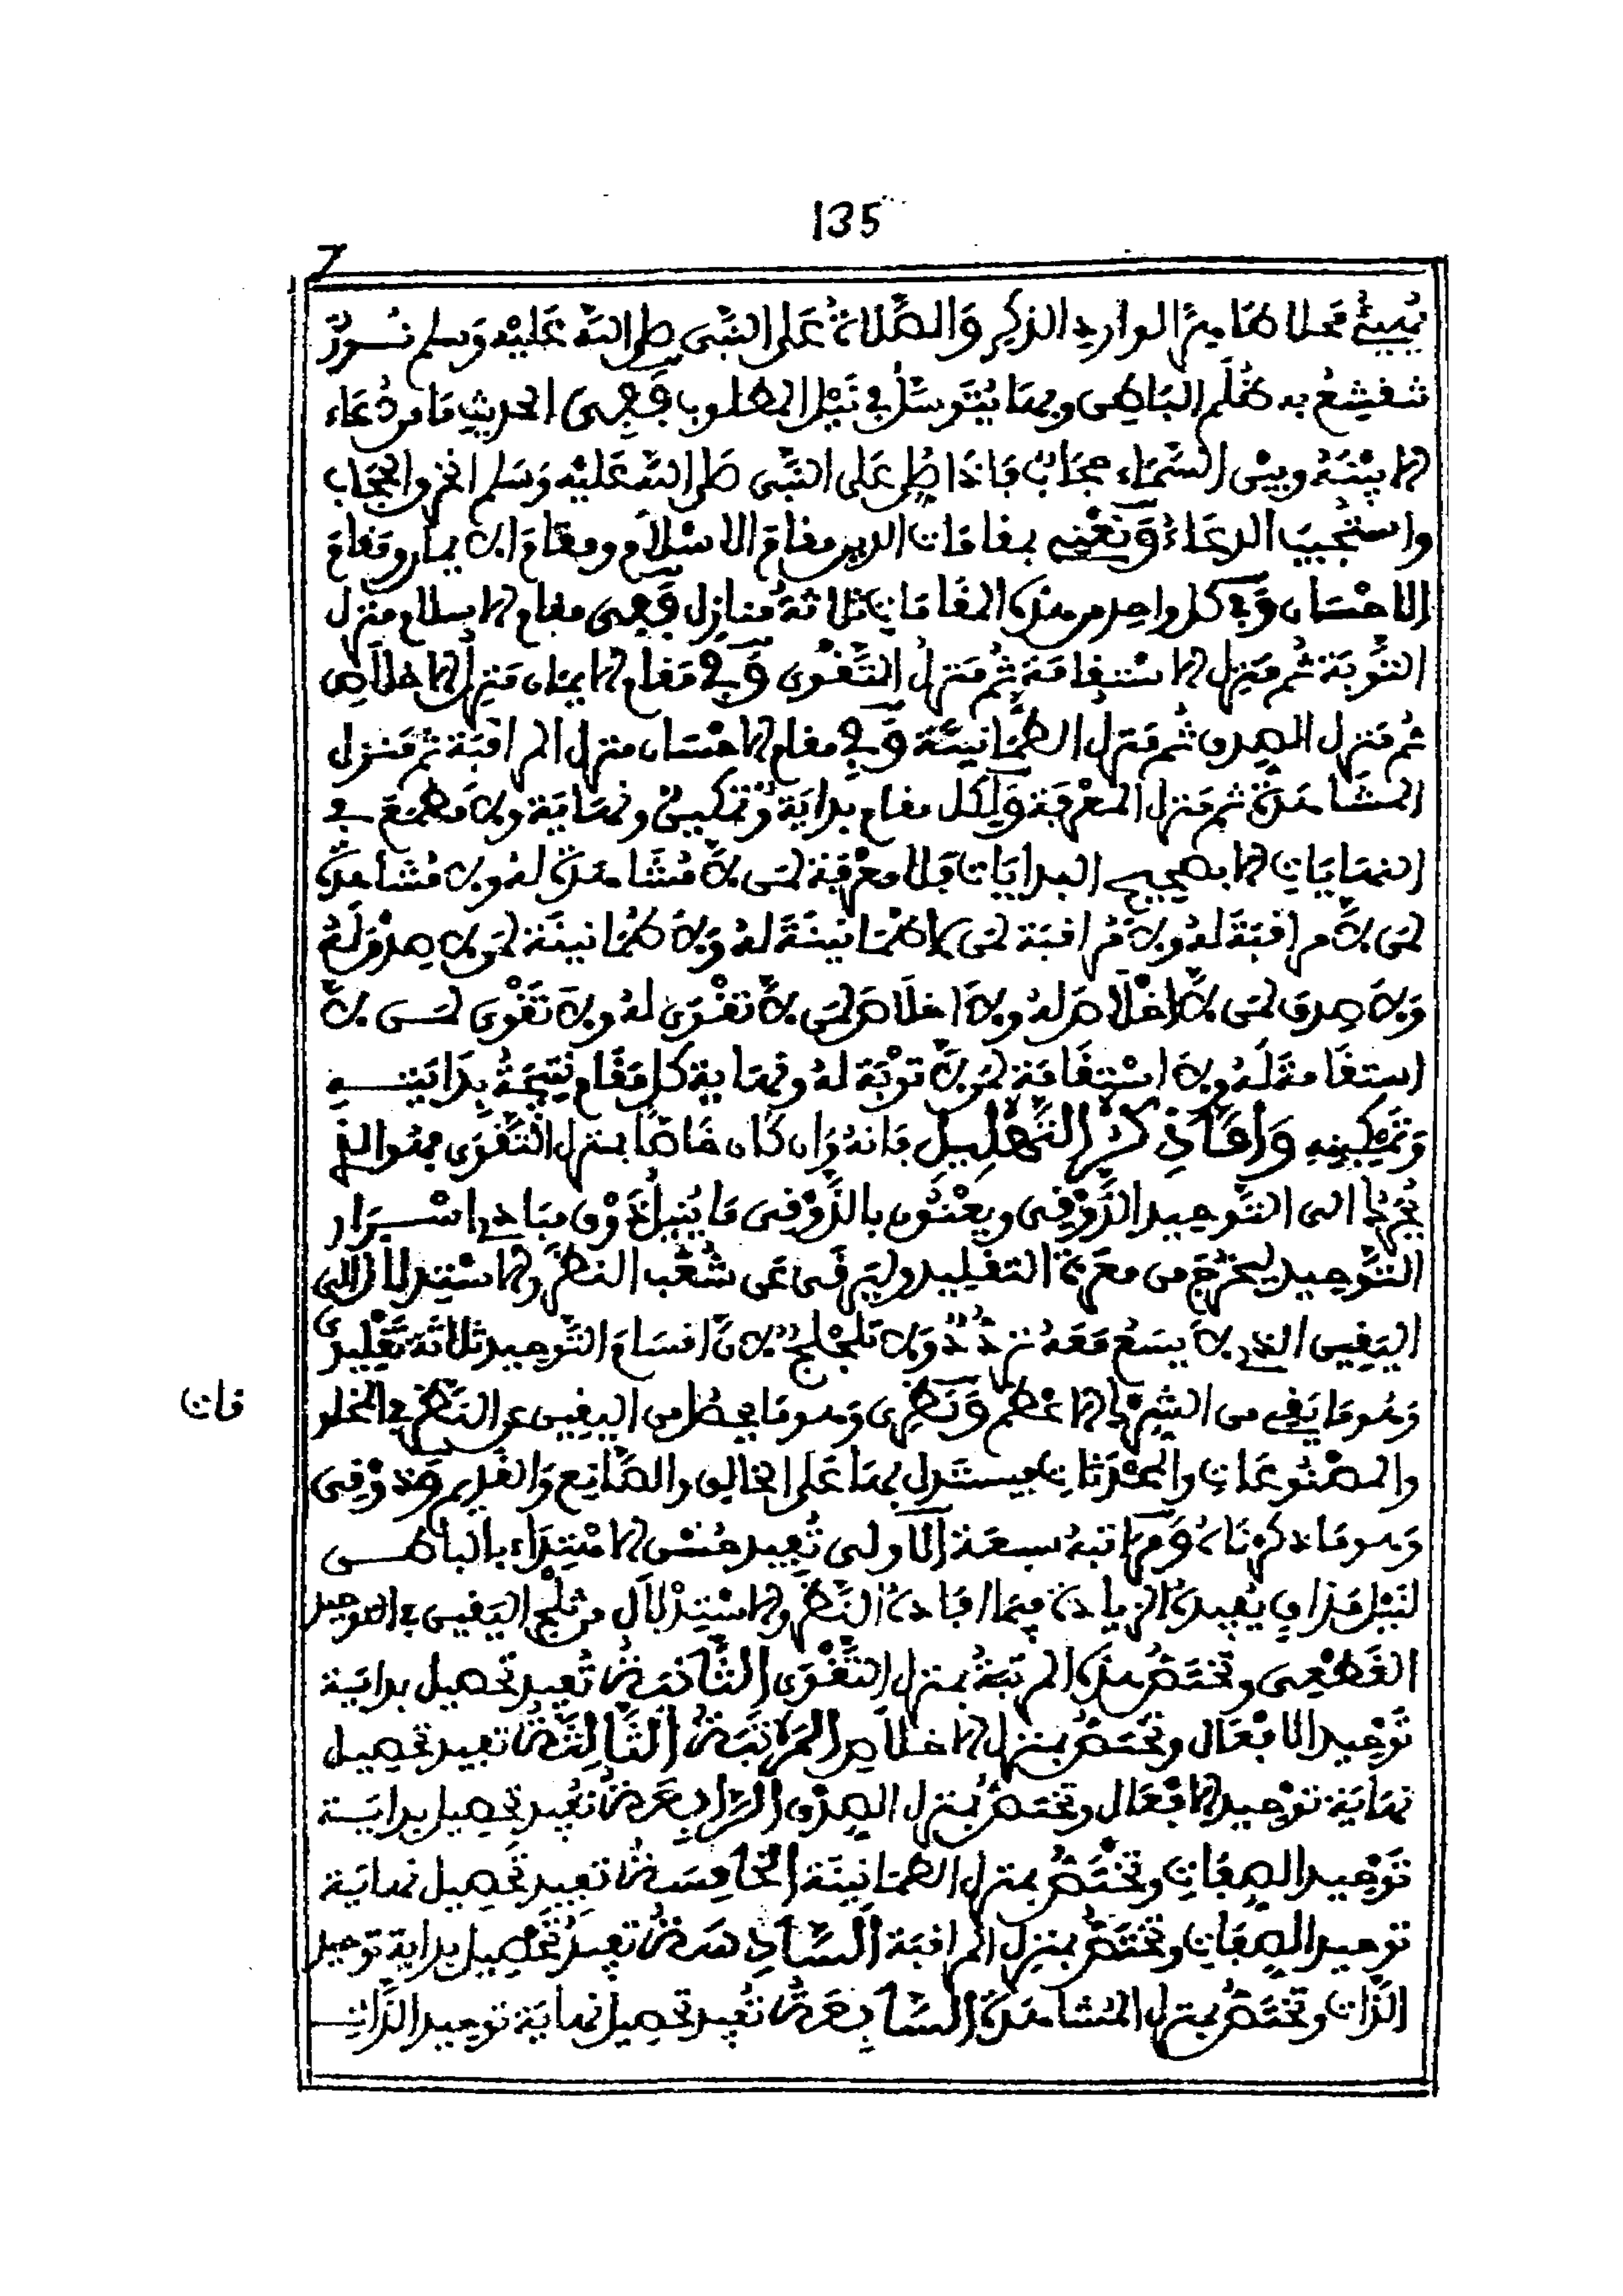 135
يُهيئُ محلا طاهرا لوارد الذكر وَالصَّلَاةُ عَلى النَّبِى صلى اللهُ عَلَيْهِ وَسلم نُـورٌ
تنقشِعُ به ظُلَم البَاطِن وبهَا يُتَوسَّلُ فى نَيْل المطلوب فَفِى الحديثِ مَا من دُعَاء
الا بيْنَهُ وبيْن السَّمَاء حِجَابٌ فَإذَا صُلِّى عَلى النَّبِى صَلى اللهُ عَلَيْهِ وَسَلم انخرق الحِجَاب
واستُجيبَ الدعَاءُ وَنَعْنِى بمقامَات الدين مقامَ الاسْلَام ومقامَ الايمان ومقامَ
الاحْسَان وَفى كل واحد من هذه المقَامَات ثلاثةُ منَازل فَفِى مقام الاسلام منزل
التَّوْبَة ثُم مَنزل الاسْتقِامَة ثُم مَنزلُ التَّقْوى وَفى مَقام الايمان مَنزل الاخلَاصِ
ثُم مَنزل الصِدق ثُم مَنزل الطُّمَانِينَة وَفى مقام الاحْسَان منزل المراقَبَة ثم مَنزل
المشَاهَدَة ثم مَنزل المَعْرفَة وَلِكل مقام بدَايَة وَتمْكِينٌ ونهَايَة ولا مَطمَعَ فى
النهَايَاتِ الا بصحيح البدايَات فَلا مَعْرفة لمَن لا مُشَاهَدَةَ لهُ ولا مُشَاهدَةَ
لمَن لا مراقبَةَ لهُ ولا مُراقبَة لمَن لا طُمَانينَةَ لهُ وَلا طُمَانينَة لمَن لا صِدْقَ لَهُ
وَلا صِدقَ لمَن لا إخْلَاصَ لهُ ولا اخلَاصَ لمَن لا تَقْوَى لهُ ولا تَقْوى لمَن لا
استقَامةَ لَهُ ولا اسْتِقَامَة لمَن لا تَوْبَة لهُ ونهَاية كل مَقَام نَتِيجَةُ بِدَايَتِــهِ
وَتَمْكِينِهِ وَأمَّا ذِكْرُ التَّهْلِيلِ فانهُ وَان كَان خَاصًا بمنزل التَّقْوَى فهُوَ الذِى
يُجرى الى التَّوحِيد الذَّوْقِى ويَعْنُون بالذَّوْقِى مَا يُنيلُ ذَوْق مبَادى اسْـرَار
التَّوْحِيد ليَخْرُجَ من مَعرّة التقليد وليَرقَى عَن شُعَب النظر والاسْتِدلَال الى
اليَقِين الذى لا يَسَعُ مَعَهُ تردُّدٌ وَلا تَلجْلج لانَّ اقسَامَ التَّوحِيد ثلَاثَة تَقْلِيدِىٌّ
وَهُو مَا يَقِى من الشرْك الاعْظم وَنَظَرِى وَهو مَا يحصُل من اليقِين عن النَّظر فى المخلو
قات
والمصْنُوعَات والمُحْدَثَات فيستَدل بهَا عَلى الخالِق والصَّانِع وَالقديم وَذَوْقِى
وَهو مَا ذكرنَاهُ وَمرَاتبهُ سبعَة الاولى تُفِيد حُسْن الابْتِدَاء بالبَاطـن
لنَيْل مَذاق يُفيدُ الزيادَة فِيمَا افَادهُ النَّظر والاسْتِدْلَال من ثلْج اليَقين فى التوحيد
القَطْعِى وتختصُّ هذه المرتبَةُ بمنزل التَّقْوَى الثَّانيَةُ تُفِيد تحصِيل بدايَة
تَوْحِيد الافْعَال وتختَصُّ بمنزل الاخلاَصِ المَرْتَبَةُ الثَّالِثَةُ تفيد تحصيل
نهَايَة تَوْحِيد الافْعَال وتختَصُّ بمنزل الصِدْق الرَّابِعَةُ تفيد تحصِيل بدايَـة
تَوْحِيد الصِفَاتِ وتختَصُّ بمنزل الطمَانِينَة الخَامِسَةُ تفِيد تحصِيل نهايَة
توحيد الصِفَات وتختَصُّ بمنزل المراقبَة السَّادِسَةُ تفِيدُ تحصِيل بدايَة توحيد
الذَّات وتختَصُّ بمنزل المُشَاهدَة السَّابِعَةُ تُفِيد تحصيل نهايَة توحيد الذَّات